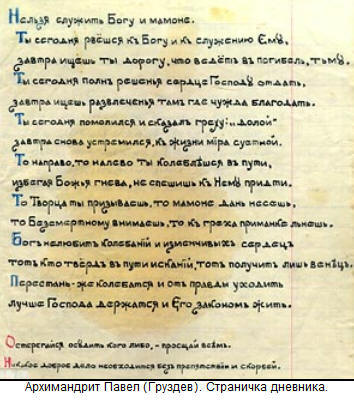 Нельзя служить Богу и мамоне.
Ты сегодня рвёшся къ Богу и къ служению Ему,
завтра ищешь ты дорогу, что ведётъ въ погибель, тьму.
Ты сегодня полнъ решенья сердце Господу отдать,
завтра ищешь развлеченья тамъ где чужда благодать.
Ты сегодня помолился и сказалъ греху: „долой"
завтра снова устремился, къ жизни мiра суетной.
То направо, то налево ты колеблѣшся въ пути,
избегая Божья гнева, не спешишь къ Нему придти.
То Творца ты призываешь, то мамоне дань несешь,
то Безсмертному внимаешь, то къ греха приманке льнешь.
Богъ нелюбитъ колебанiй и изменчивыхъ сердецъ
тотъ кто твёрдъ въ пути исканiй, тотъ получитъ лишь венецъ.
Перестань-же колебатся и отъ правды уходить
лучше Господа держатся и Его закономъ жить.
Остерегайся осудить кого либо, - прощай всемъ.
Никакое доброе дело необходится безъ препятствiй и скорбей.
Архимандрит Павел (Груздев). Страничка дневника.